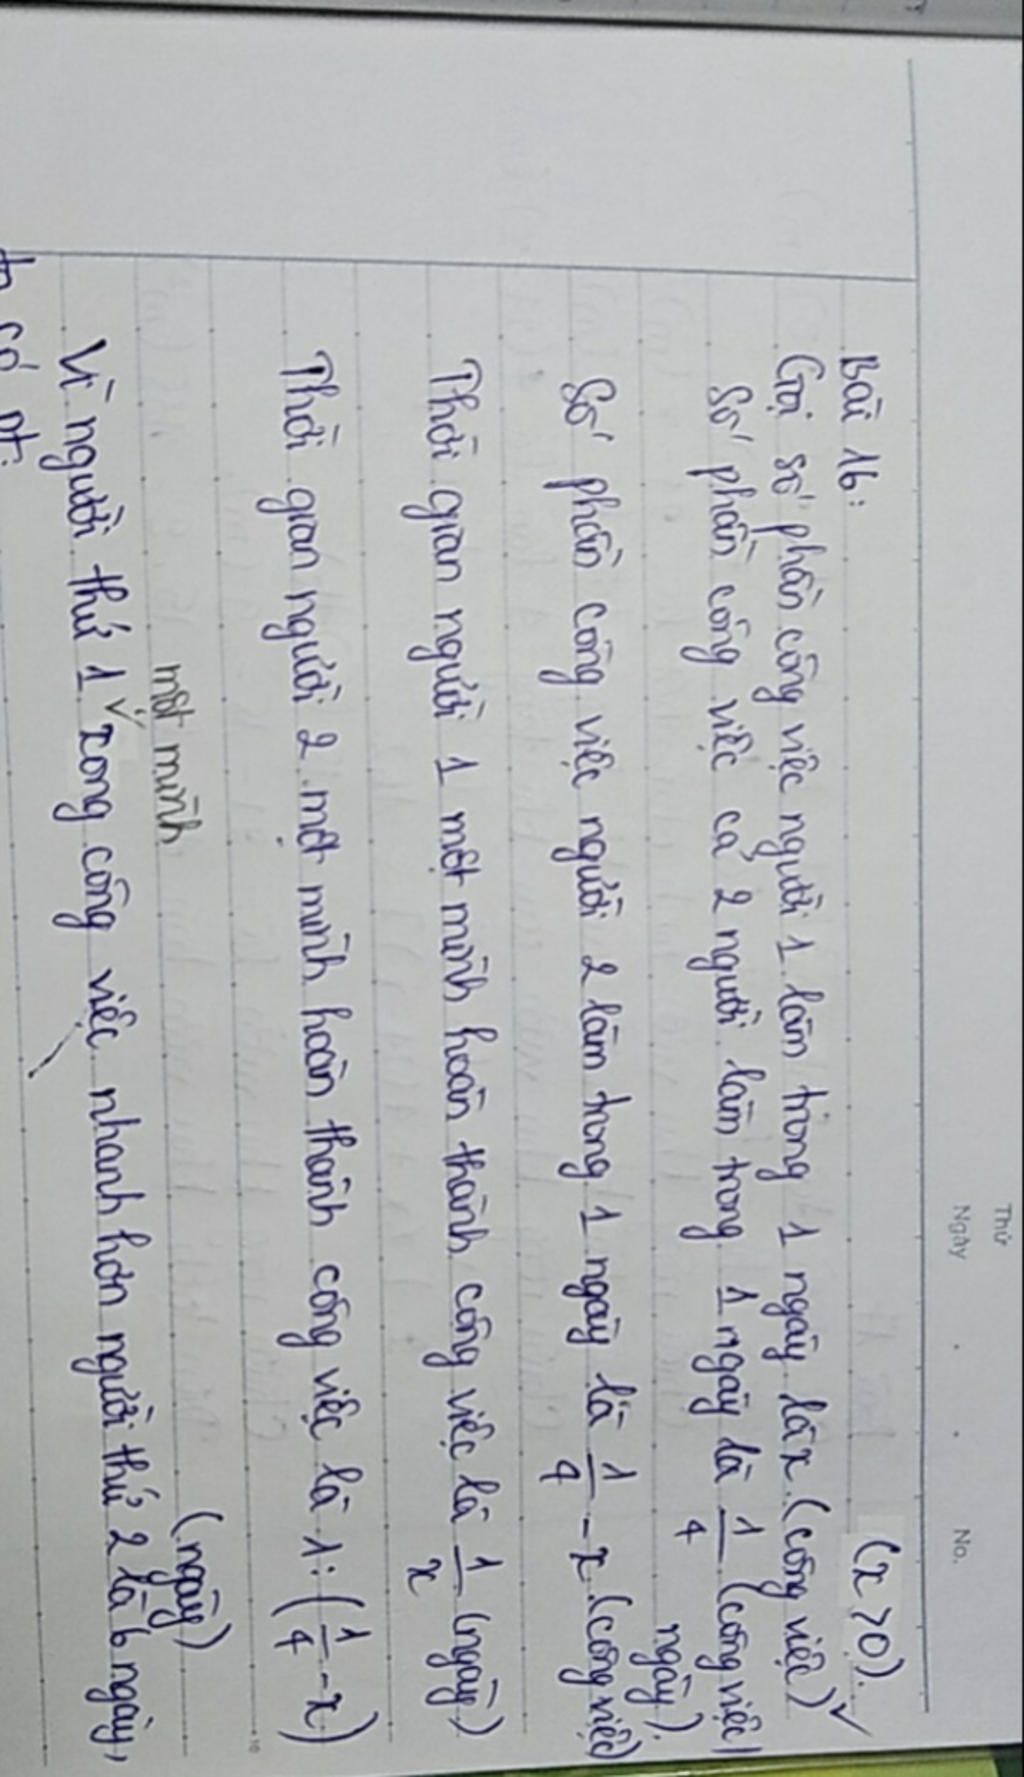 Thứ
Ngày . . No.
Bài 16: (x > 0).
Gọi số phần công việc người 1 làm trong 1 ngày là x (công việc)
Số phần công việc cả 2 người làm trong 1 ngày là 1/4 (công việc/
ngày).
Số phần công việc người 2 làm trong 1 ngày là 1/4 - x (công việc)
Thời gian người 1 một mình hoàn thành công việc là 1/x (ngày)
Thời gian người 2 một mình hoàn thành công việc là 1 : (1/4 - x)
một mình (ngày)
Vì người thứ 1 xong công việc nhanh hơn người thứ 2 là 6 ngày,
ta có pt: